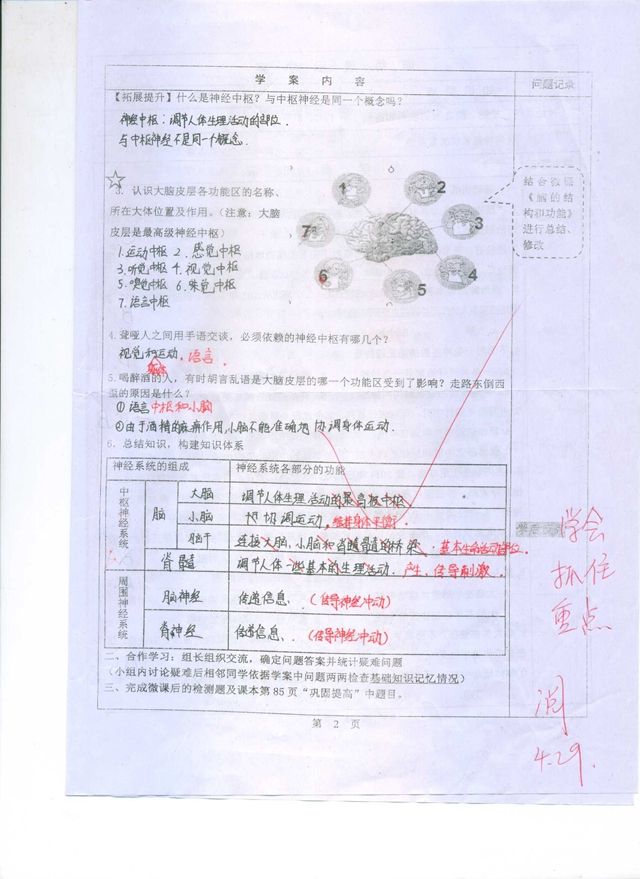 学 案 内 容
问题记录
【拓展提升】什么是神经中枢？与中枢神经是同一个概念吗？
神经中枢：调节人体生理活动的部位.
与中枢神经不是同一个概念.
3. 认识大脑皮层各功能区的名称、
所在大体位置及作用。（注意：大脑
皮层是最高级神经中枢）
1.运动中枢 2.感觉中枢
3.听觉中枢 4.视觉中枢
5.嗅觉中枢 6.味觉中枢
7.语言中枢
1
2
3
4
5
6
7
结合微课
《脑的结
构和功能》
进行总结、
修改
4.聋哑人之间用手语交谈，必须依赖的神经中枢有哪几个？
视觉和运动. 语言.
5.喝醉酒的人，有时胡言乱语是大脑皮层的哪一个功能区受到了影响？走路东倒西
歪的原因是什么？
①语言中枢和小脑
②由于酒精的麻痹作用,小脑不能准确地协调身体运动.
6.总结知识，构建知识体系
神经系统的组成
神经系统各部分的功能
中枢神经系统
脑
大脑
调节人体生理活动的最高级中枢
小脑
协调运动, 维持身体平衡
脑干
连接大脑、小脑和脊髓的桥梁. 基本生命活动部位.
脊髓
调节人体一些基本的生理活动. 产生、传导刺激.
周围神经系统
脑神经
传道信息. (传导神经冲动)
脊神经
传道信息. (传导神经冲动)
学会
抓住
重点
二、合作学习：组长组织交流，确定问题答案并统计疑难问题
（小组内讨论疑难后相邻同学依据学案中问题两两检查基础知识记忆情况）
三、完成微课后的检测题及课本第85页“巩固提高”中题目。
第 2 页
4.29.